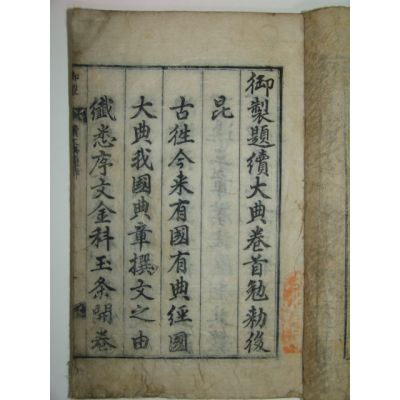 御製題續大典卷首勉勅後
昆
古徃今来有國有典經國
大典我國典章撰文之由
纖悉序文金科玉条開卷